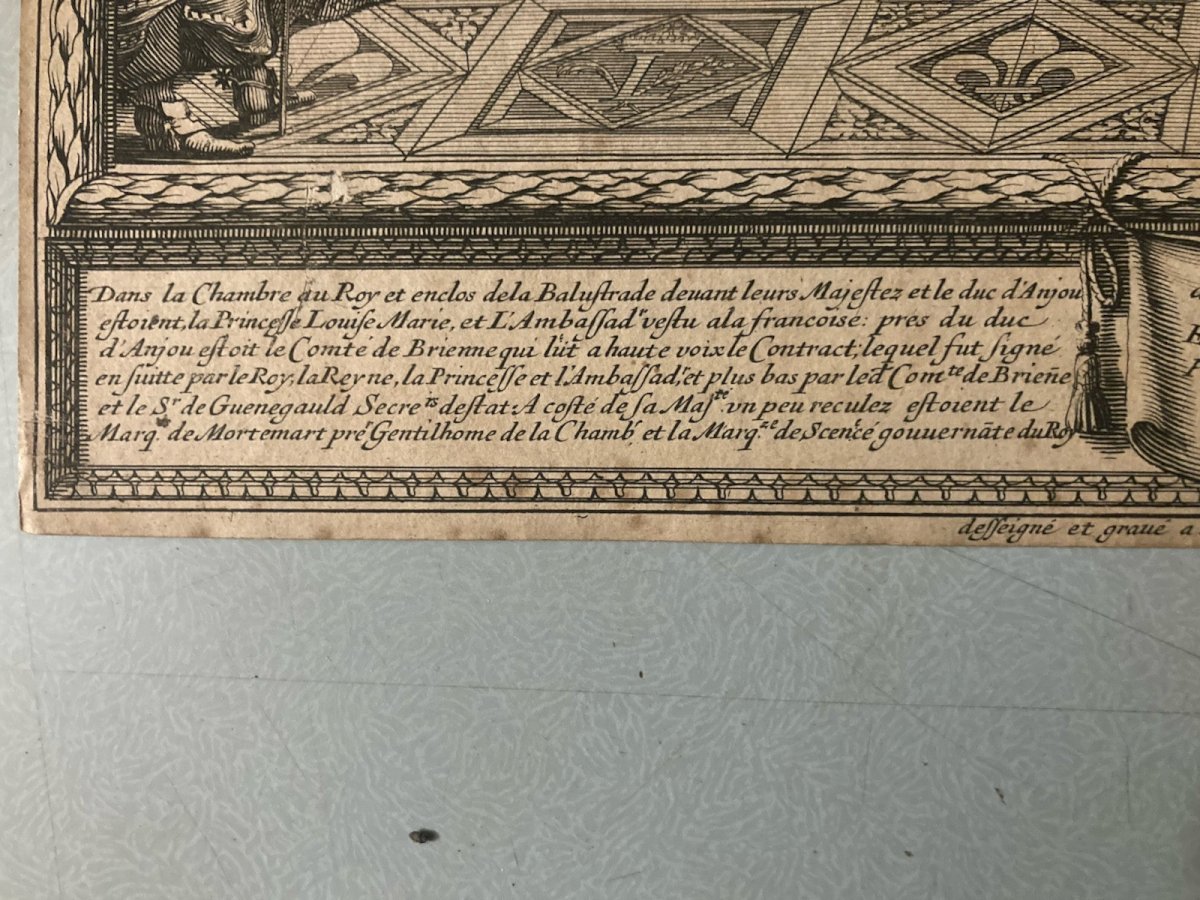 Dans la Chambre du Roy et enclos dela Balustrade deuant leurs Majestez et le duc d'Anjou
estoient, la Princesse Louise Marie, et L'Ambassad.r vestu ala francoise: pres du duc
d'Anjou estoit le Comte de Brienne qui lüt a haute voix le Contract, lequel fut signé
en suitte par le Roy, la Reyne, la Princesse et l'Ambassad.r, et plus bas par led. Com.te de Brieñe
et le S.r de Guenegauld Secre.rs destat: A costé de sa Maj.te vn peu reculez estoient le
Marq.is de Mortemart pre.r Gentilhome de la Chamb.r et la Marq.se de Scencé gouuernãte du Roy
desseigné et graué a